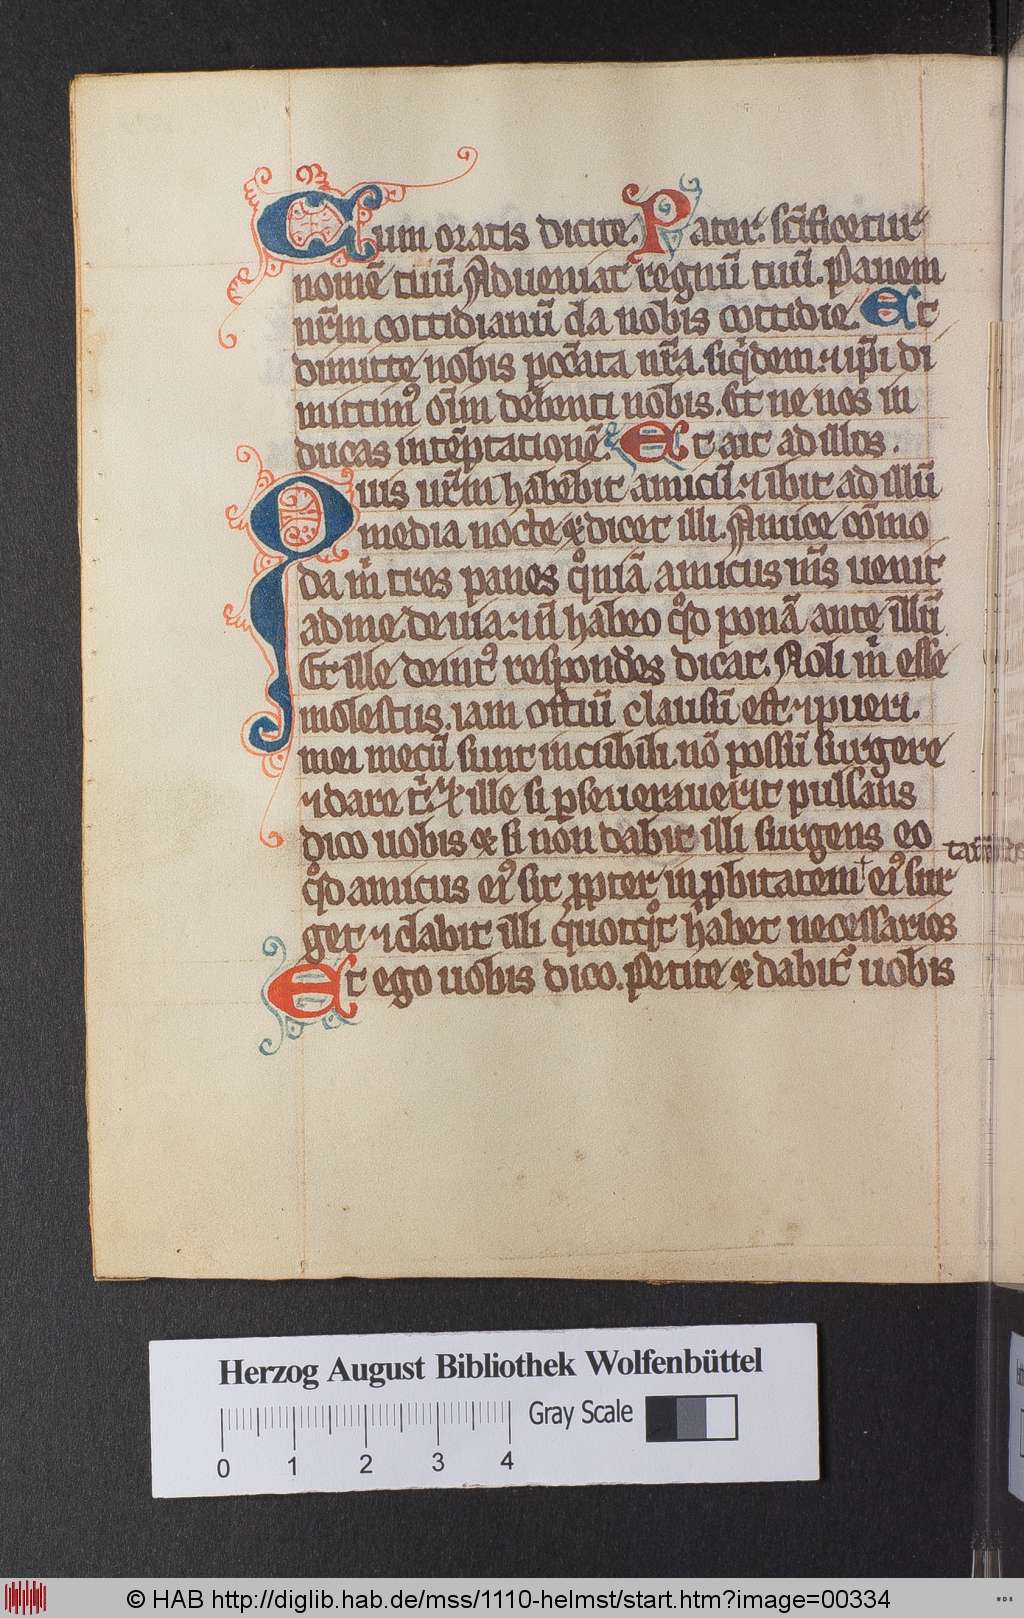 Cum oratis dicite. Pater. sc̄ificetur
nomē tuū. Adueniat regnū tuū. Panem
nr̄m cottidianū da nobis cottidie. Et
dimitte nobis pcc̄ata nr̄a. siqͥdem. ⁊ ip̄i di
mittimꝰ om̄i debenti nobis. Et ne nos in
ducas in tēptationē. Et ait ad illos.
Quis ur̄m habebit amicū. ⁊ ibit ad illū
media nocte & dicet illi. Amice com̄o
da m̄ tres panes qͦniā amicus m̄s uenit
ad me de uia. ⁊ n̄ habeo qͦd ponā ante illū
Et ille deintꝰ respondēs dicat. Noli m̄ esse
molestus. iam ostiū clausū est. ⁊ pueri.
mei mecū sunt in cubili. nō possū surgere
⁊ dare tͥ. Et ille si ꝑseuerauerit pulsans
dico uobis & si non dabit illi surgens eo
qͦd amicus eiꝰ sit ꝓpter inꝓbitatem eiꝰ sur
get ⁊ dabit illi quotqͦt habet necessarios
Et ego uobis dico. Petite & dabitᷣ uobis
Herzog August Bibliothek Wolfenbüttel
0 1 2 3 4 Gray Scale
© HAB http://diglib.hab.de/mss/1110-helmst/start.htm?image=00334